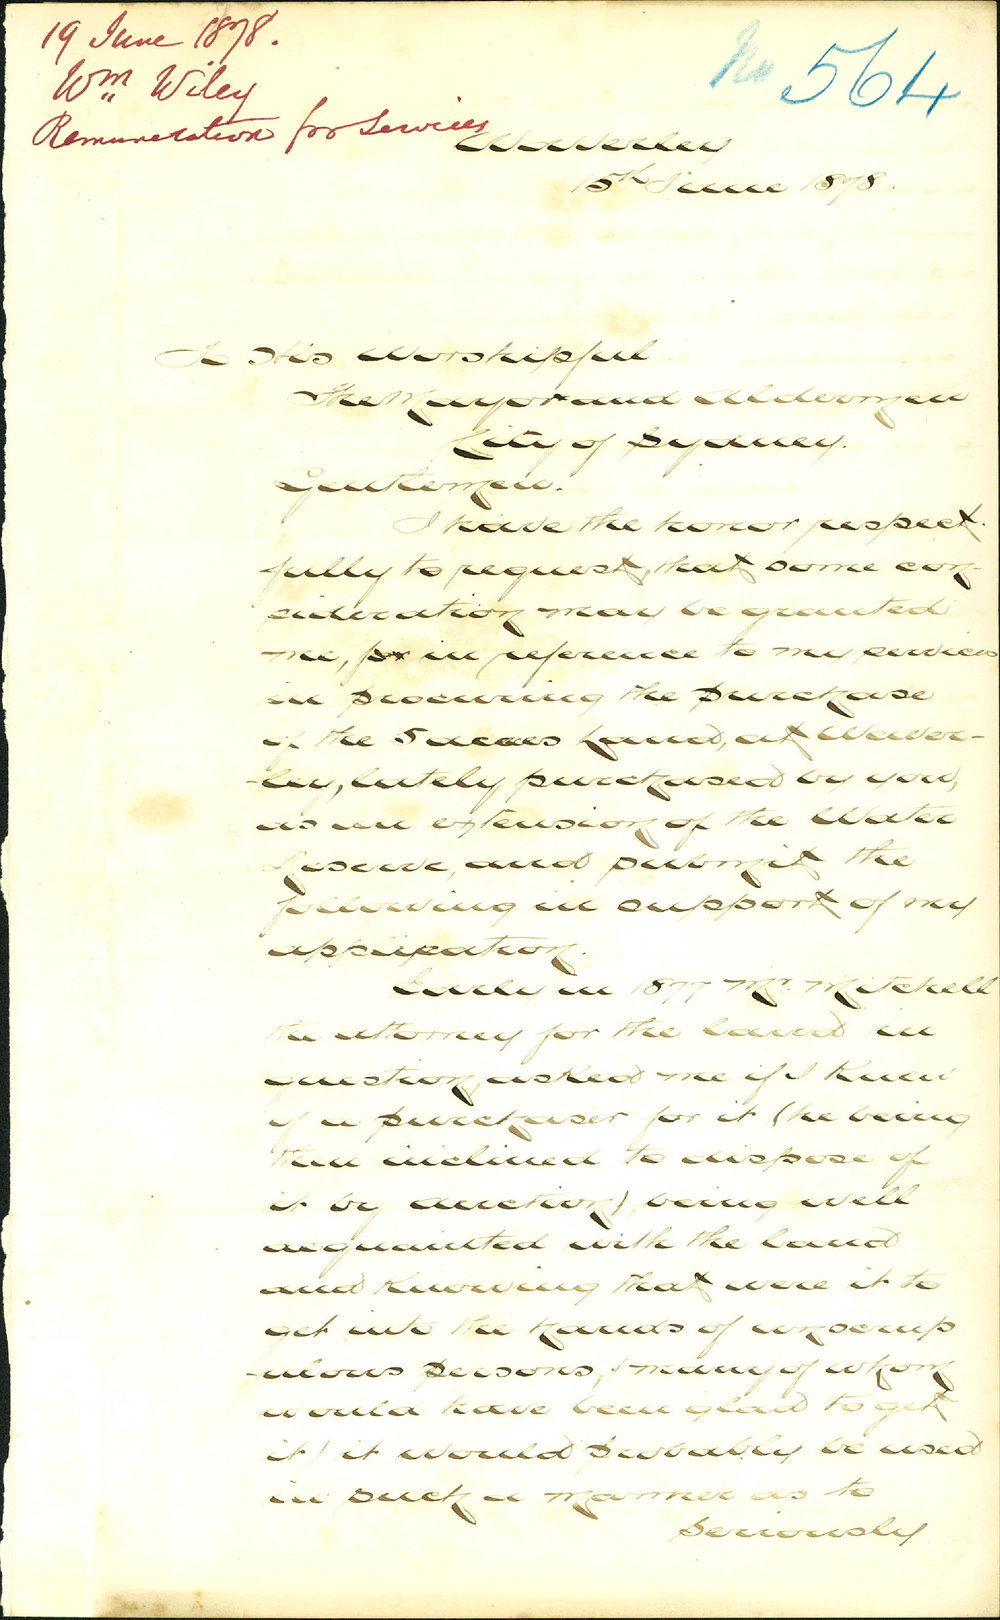 19 June 1878.
Wm Wiley
Remuneration for Services
No 564
Waverley
15th June 1878.
To His Worshipful
The Mayor and Aldermen
City of Sydney.
Gentlemen.
I have the honor respect-
fully to request, that some con-
sideration may be granted
me, for in reference to my services
in procuring the purchase
of the 5 acres land, at Waver-
-ley, lately purchased by you,
as an extension of the Water
Reserve, and submit the
following in support of my
application.
Early in 1877 Mr. Mitchell
the attorney for the land in
question, asked me if I knew
of a purchaser for it (he being
then inclined to dispose of
it by auction), being well
acquainted with the land
and knowing that were it to
get into the hands of unscrup
-ulous persons, (many of whom
would have been glad to get
it) it would probably be used
in such a manner as to
Seriously